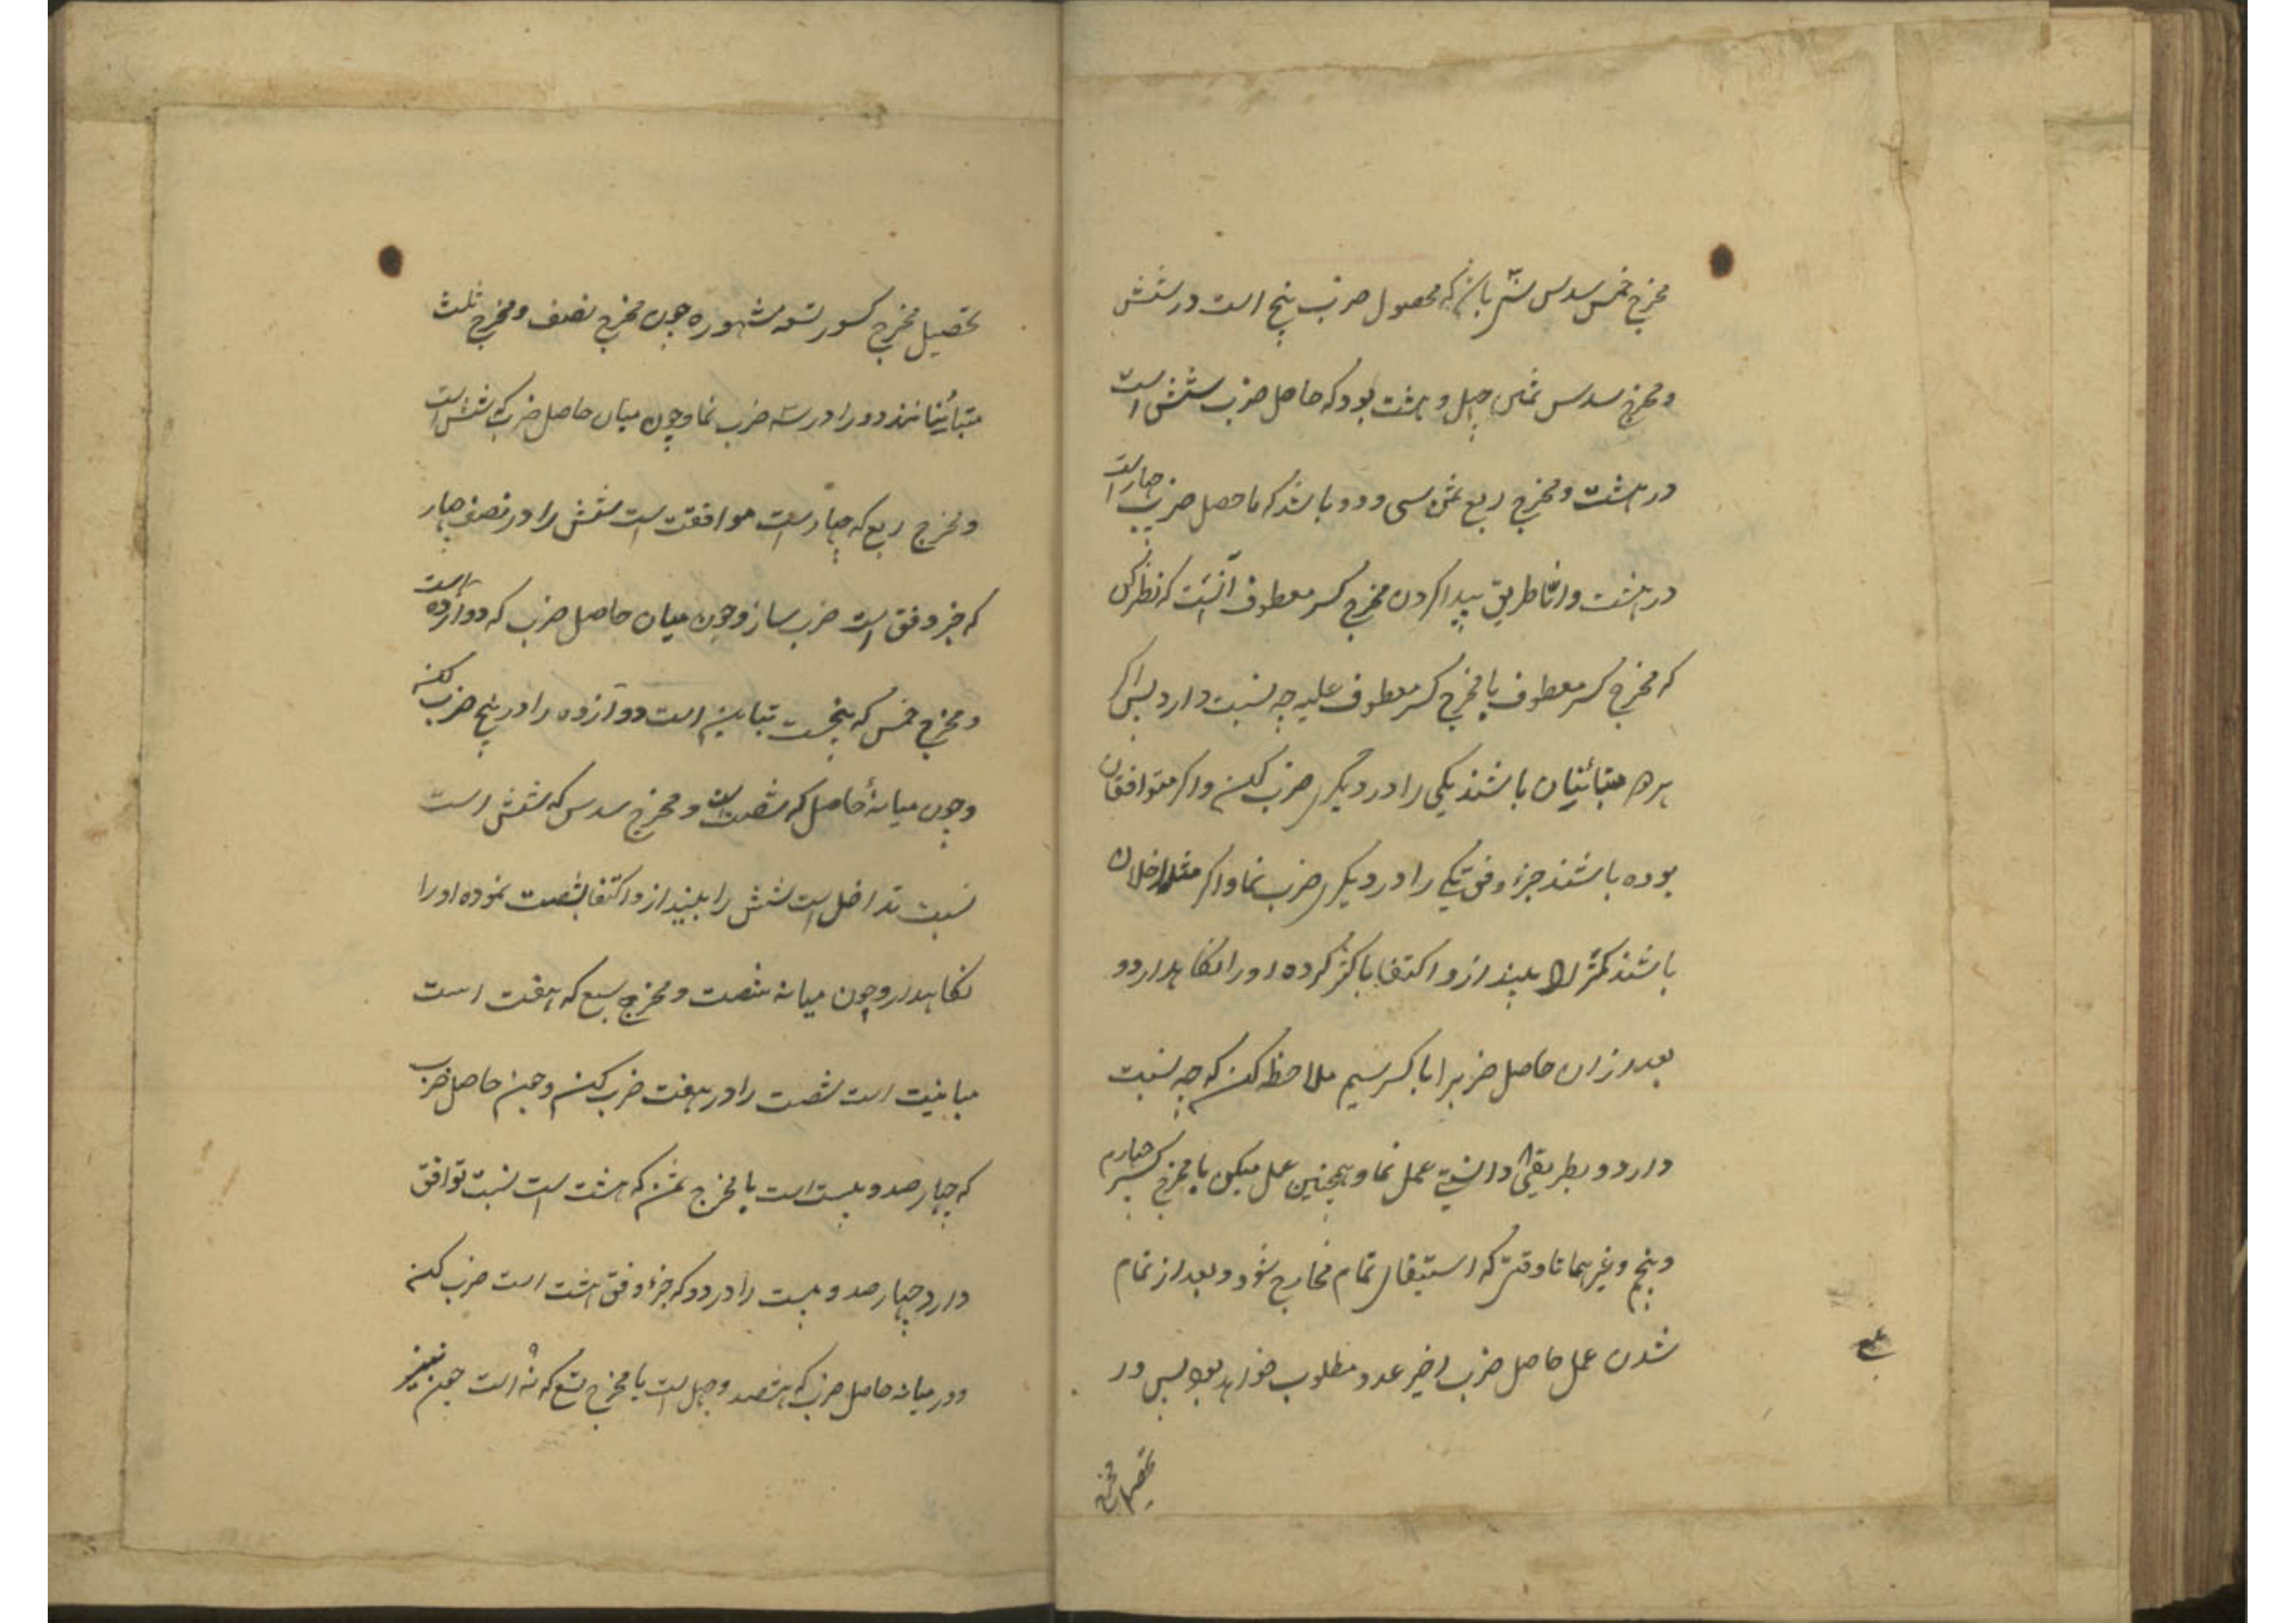 مخرج خمس سدس سی زیرا که محصول ضرب پنج است در شش
و مخرج سدس ثمن چهل و هشت بود که حاصل ضرب شش است
در هشت و مخرج ربع ثمن سی و دو باشد که ماحصل ضرب چهار است
در هشت و اما طریق پیدا کردن مخرج کسر معطوف آنست که نظر کن
که مخرج کسر معطوف با مخرج کسر معطوف علیه چه نسبت دارد پس اکر
هر دو متبائنان باشند یکی را در دیکر ضرب کن و اکر متوافقان
بوده باشند جزء وفق یکی را در دیکر ضرب نما و اکر متداخلان
باشند کمتر را بینداز و اکتفا باکثر کرده او را نکاهدار و
بعد از ان حاصل ضرب را با کسر سیم ملاحظه کن که چه نسبت
دارد و بطریقی دانستی عمل نما و همچنین عمل میکن با مخرج کسر چهارم
و پنجم و غیرهما تا وقتی که استیفای تمام مخارج شود و بعد از تمام
شدن عمل حاصل ضرب اخیر عدد مطلوب خواهد بود پس در
تحصیل مخرج
تحصیل مخرج کسور تسعه مشهوره چون مخرج نصف و مخرج ثلث
متبائنانند دو را در سه ضرب نما و چون میان حاصل ضرب که شش است
و مخرج ربع که چهار است موافقت است شش را در نصف چهار
که جزء وفق است ضرب ساز و چون میان حاصل ضرب که دوازده است
و مخرج خمس که پنجست تباین است دوازده را در پنج ضرب کن
و چون میانهٔ حاصل که شصت است و مخرج سدس که شش است
نسبت تداخل است شش را بینداز و اکتفا بشصت نموده او را
نکاهدار و چون میانه شصت و مخرج سبع که هفت است
مباینت است شصت را در هفت ضرب کن و چون حاصل ضرب
که چهار صد و بیست است با مخرج ثمن که هشت است نسبت توافق
دارد چهار صد و بیست را در دو که جزء وفق هشت است ضرب کن
و در میانه حاصل ضرب که هشتصد و چهل است با مخرج تسع که نه است چون نیز